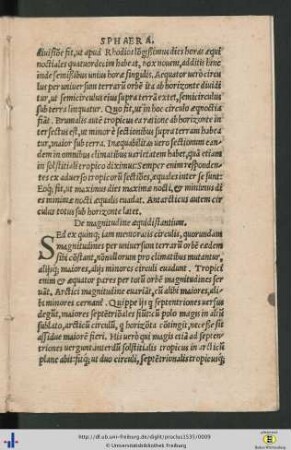 SPHAERA.
diuisiõe fit, ut apud Rhodios lõgissimus dies horas equi
noctiales quatuordecim habeat, nox nouem, additis hinc
inde semissibus unius horæ singulis. Aequator uerò circulus
per uniuersum terrarũ orbẽ ita ab horizonte diuidi
tur, ut semicirculus eius supra terrã extet, semicirculus
sub terra linquatur. Quo fit, ut in hoc circulo æqnoctia
fiãt. Brumalis autẽ tropicus ea ratione ab horizonte in
tersectus est, ut minorẽ sectionibus supra terram habea
tur, maior sub terra. Inæquabilitas uero sectionum ean
dem in omnibus climatibus uarietatem habet, quã etiam
in solstitiali tropico diximus: Semper enim respondentes
ex aduerso tropicorũ sectiões, æquales inter se sunt:
Eoq; fit, ut maximus dies maximæ nocti, & minimus di
es minimæ nocti æqualis euadat. Antarcticus autem cir
culus totus sub horizonte latet.
De magnitudine æquidistantium.
Sed ex quinq; iam memoratis circulis, quorundam
magnitudines per uniuersum terrarũ orbẽ eædem
sibi cõstant, nõnullorum pro climatibus mutantur,
alijsq; maiores, alijs minores circuli euadunt. Tropici
enim & æquator pares per totũ orbẽ magnitudines ser
uãt, Arctici magnitudine euariãt, cũ alibi maiores, ali-
bi minores cernant. Quippe ijs q septentriones uersus
degũt, maiores septẽtriõales fiũt: cũ polo magis in altũ
sublato, arcticũ circulũ, q horizõtẽ cõtingit, necesse sit
assidue maiorẽ fieri. His uerò qui magis etiã ad septen-
triones uergunt, interdũ solstitialis tropicus in arcticũ
plane abit: sitq; ut duo circuli, septẽtrionalis tropicusq;
http://dl.ub.uni-freiburg.de/diglit/proclus1535/0009
© Universitätsbibliothek Freiburg